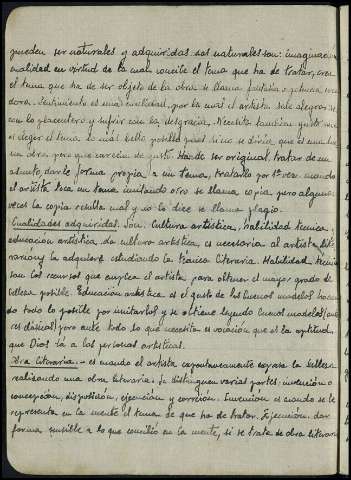 pueden ser naturales y adquiridas. Las naturales son: imaginacion
cualidad en virtud de la cual concibe el tema que ha de tratar, crea
el tema que ha de ser objeto de la obra se llama fantasia o potencia crea-
dora. Sentimiento es una cualidad, por la cual el artista sale alegre,
con lo placentero y sufrir con la desgracia. Necesita tambien gusto
elegir el tema lo más bello posible pues si no se diria que el
una obra pero que carecia de gusto. Ha de ser original tratar de un
asunto, darle forma propia a un tema, tratarlo por 1ª vez cuando
el artista toca un tema imitando otro se llama copia pero algunas
veces la copia resulta mal y no lo dice se llama plagio.
Cualidades adquiridas. Son: Cultura artística, habilidad tecnica y
educacion artística. La cultura artistica, es necesaria al artista lite-
rario y la adquiere estudiando la técnica Literaria. Habilidad técnica
son los recursos que emplea el artista para obtener el mayor grado de
belleza posible. Educacion artística es el gusto de los buenos modelos
do todo lo posible por imitarlos y se obtiene leyendo buenos modelos
es clásicas) pero ante todo lo que necesita es vocación que es la aptitud,
que Dios da a las personas artísticas.
Obra literaria. - es cuando el artista espontaneamente expresa la belleza
realizando una obra literaria. Se distinguen varias partes: invención o
concepción, disposicion, ejecucion y correción. Invencion es cuando se le
representa en la mente el tema de que ha de tratar. Ejecución dar
forma sensible a lo que concibió en la mente, si se trata de obra literaria